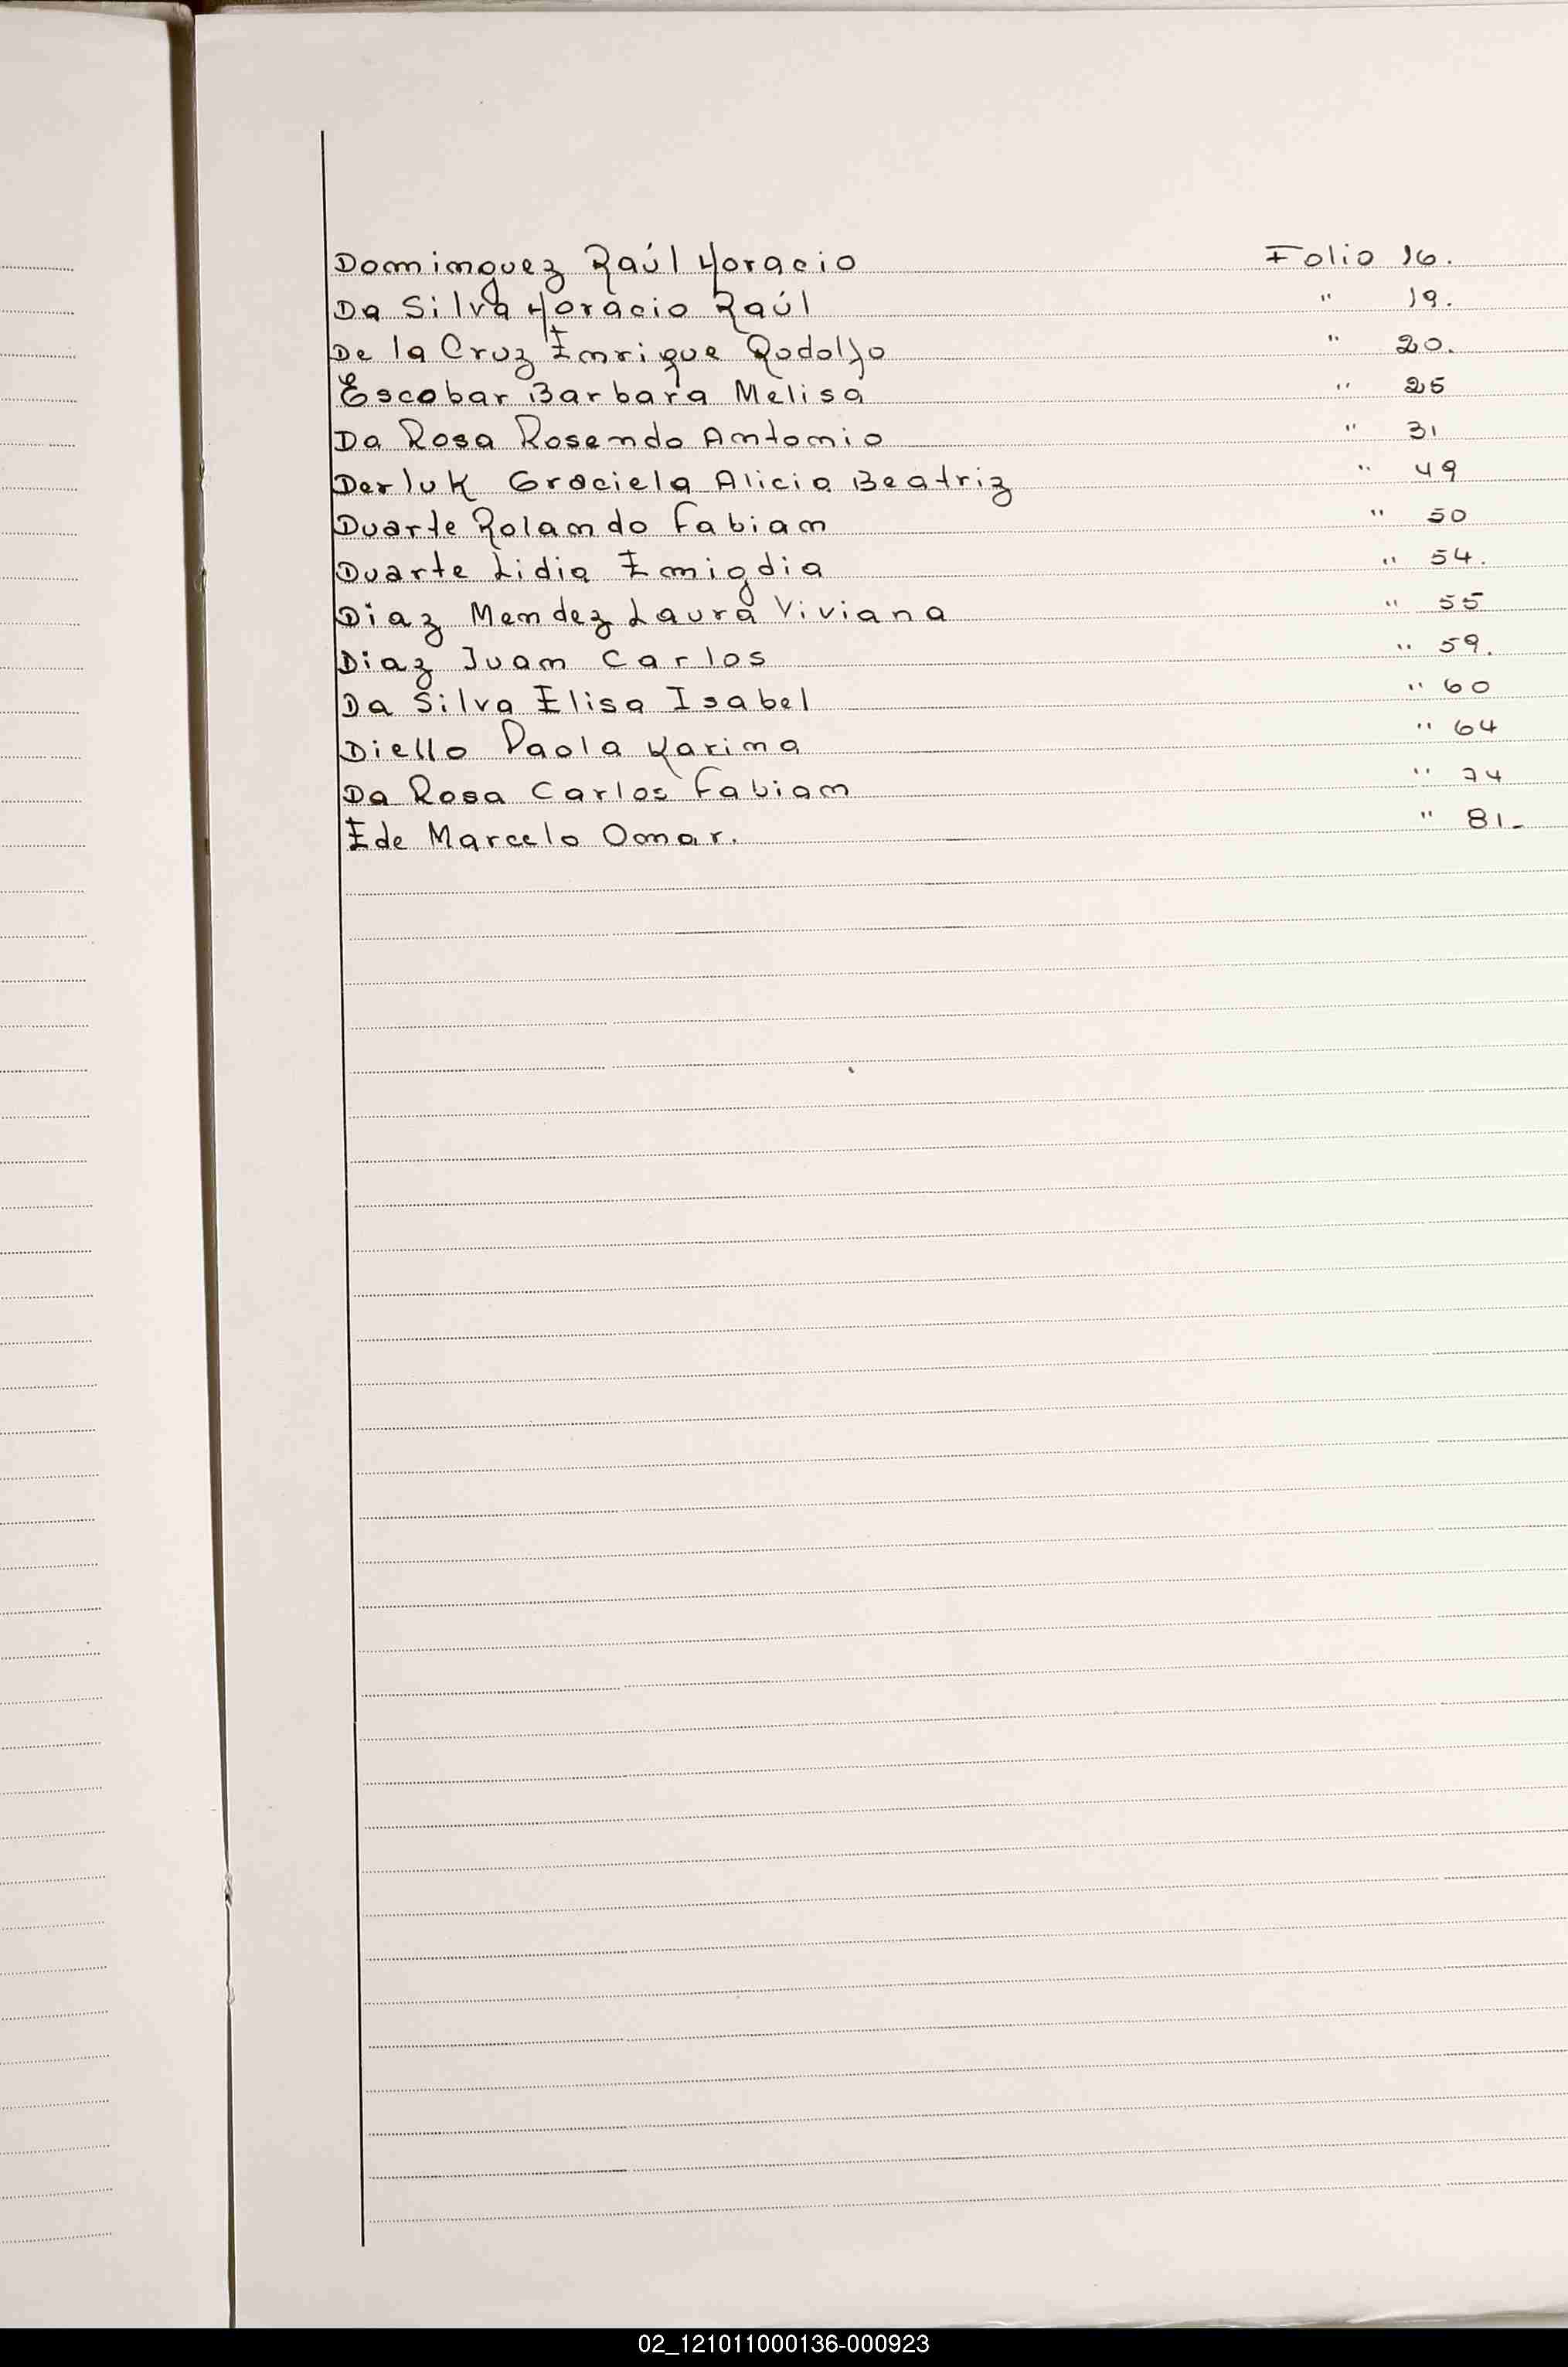 Dominguez Raúl Horacio Folio 16.
Da Silva Horacio Raúl " 19.
De la Cruz Enrique Rodolfo " 20.
Escobar Barbara Melisa " 25
Da Rosa Rosendo Antonio " 31
Derluk Graciela Alicia Beatriz " 49
Duarte Rolando Fabian " 50
Duarte Lidia Emigdia " 54.
Diaz Mendez Laura Viviana " 55
Diaz Juan Carlos " 59.
Da Silva Elisa Isabel " 60
Diello Paola Karina " 64
Da Rosa Carlos Fabian " 74
Ede Marcelo Omar. " 81-
02_121011000136-000923